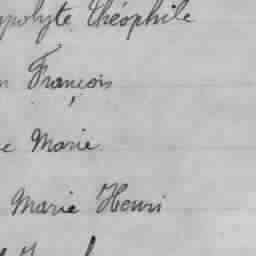 ypolyte Théophile
n François
e Marie
Marie Henri